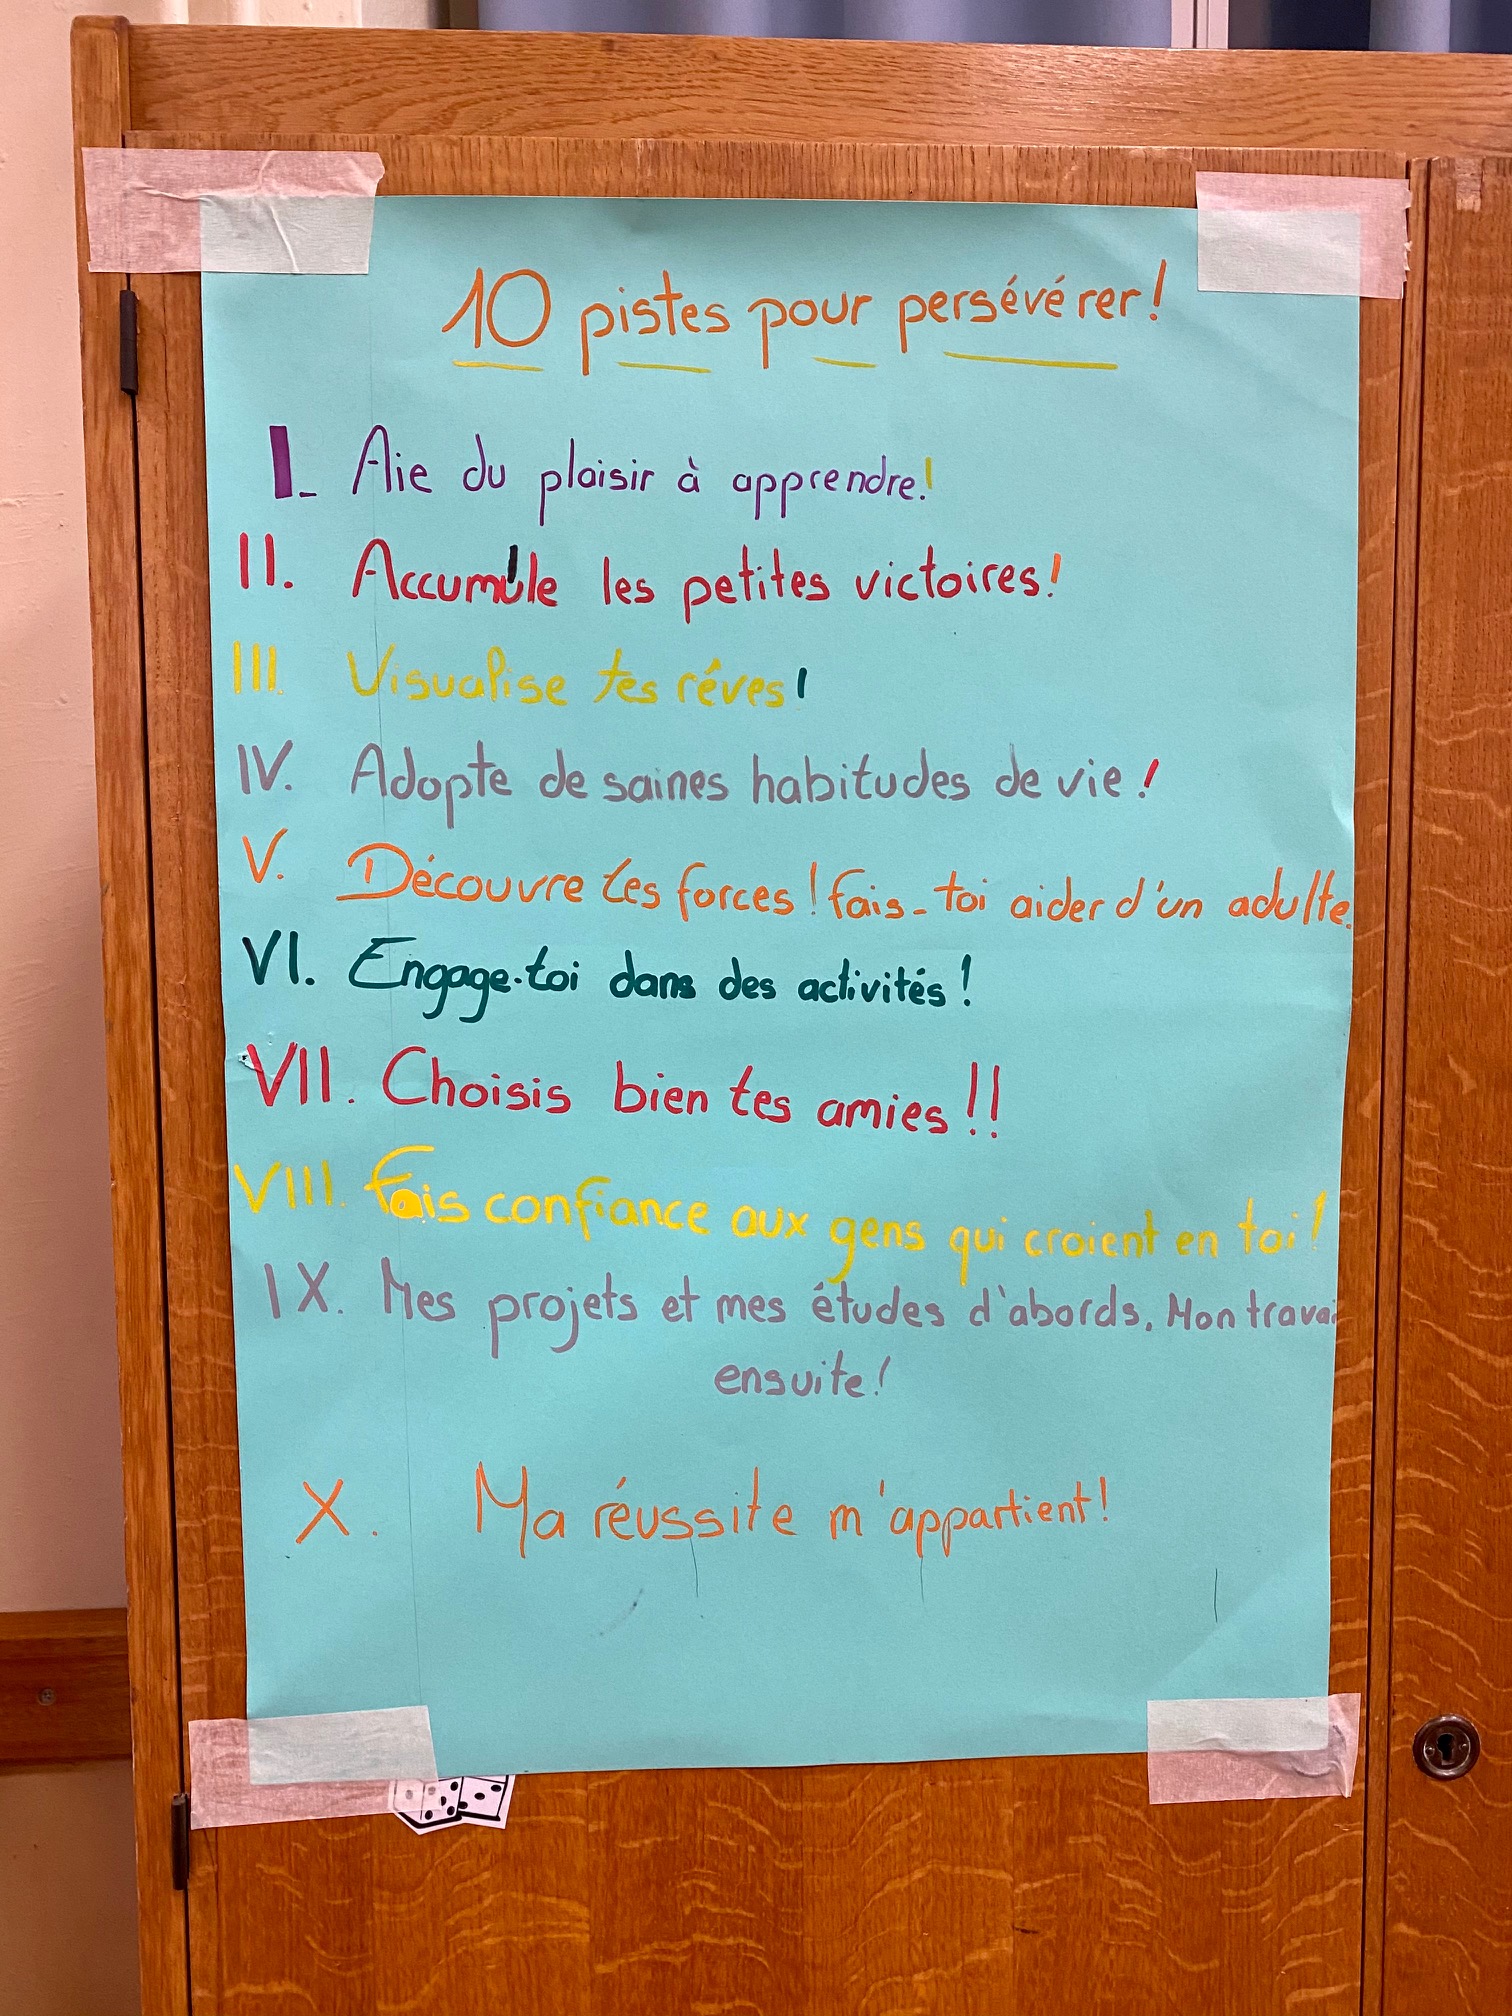 10 pistes pour persévérer!
I_ Aie du plaisir à apprendre!
II. Accumule les petites victoires!
III. Visualise tes rêves!
IV. Adopte de saines habitudes de vie!
V. Découvre tes forces! fais-toi aider d'un adulte.
VI. Engage-toi dans des activités!
VII. Choisis bien tes amies!!
VIII. Fais confiance aux gens qui croient en toi!
IX. Mes projets et mes études d'abords. Mon travai
ensuite!
X. Ma réussite m'appartient!